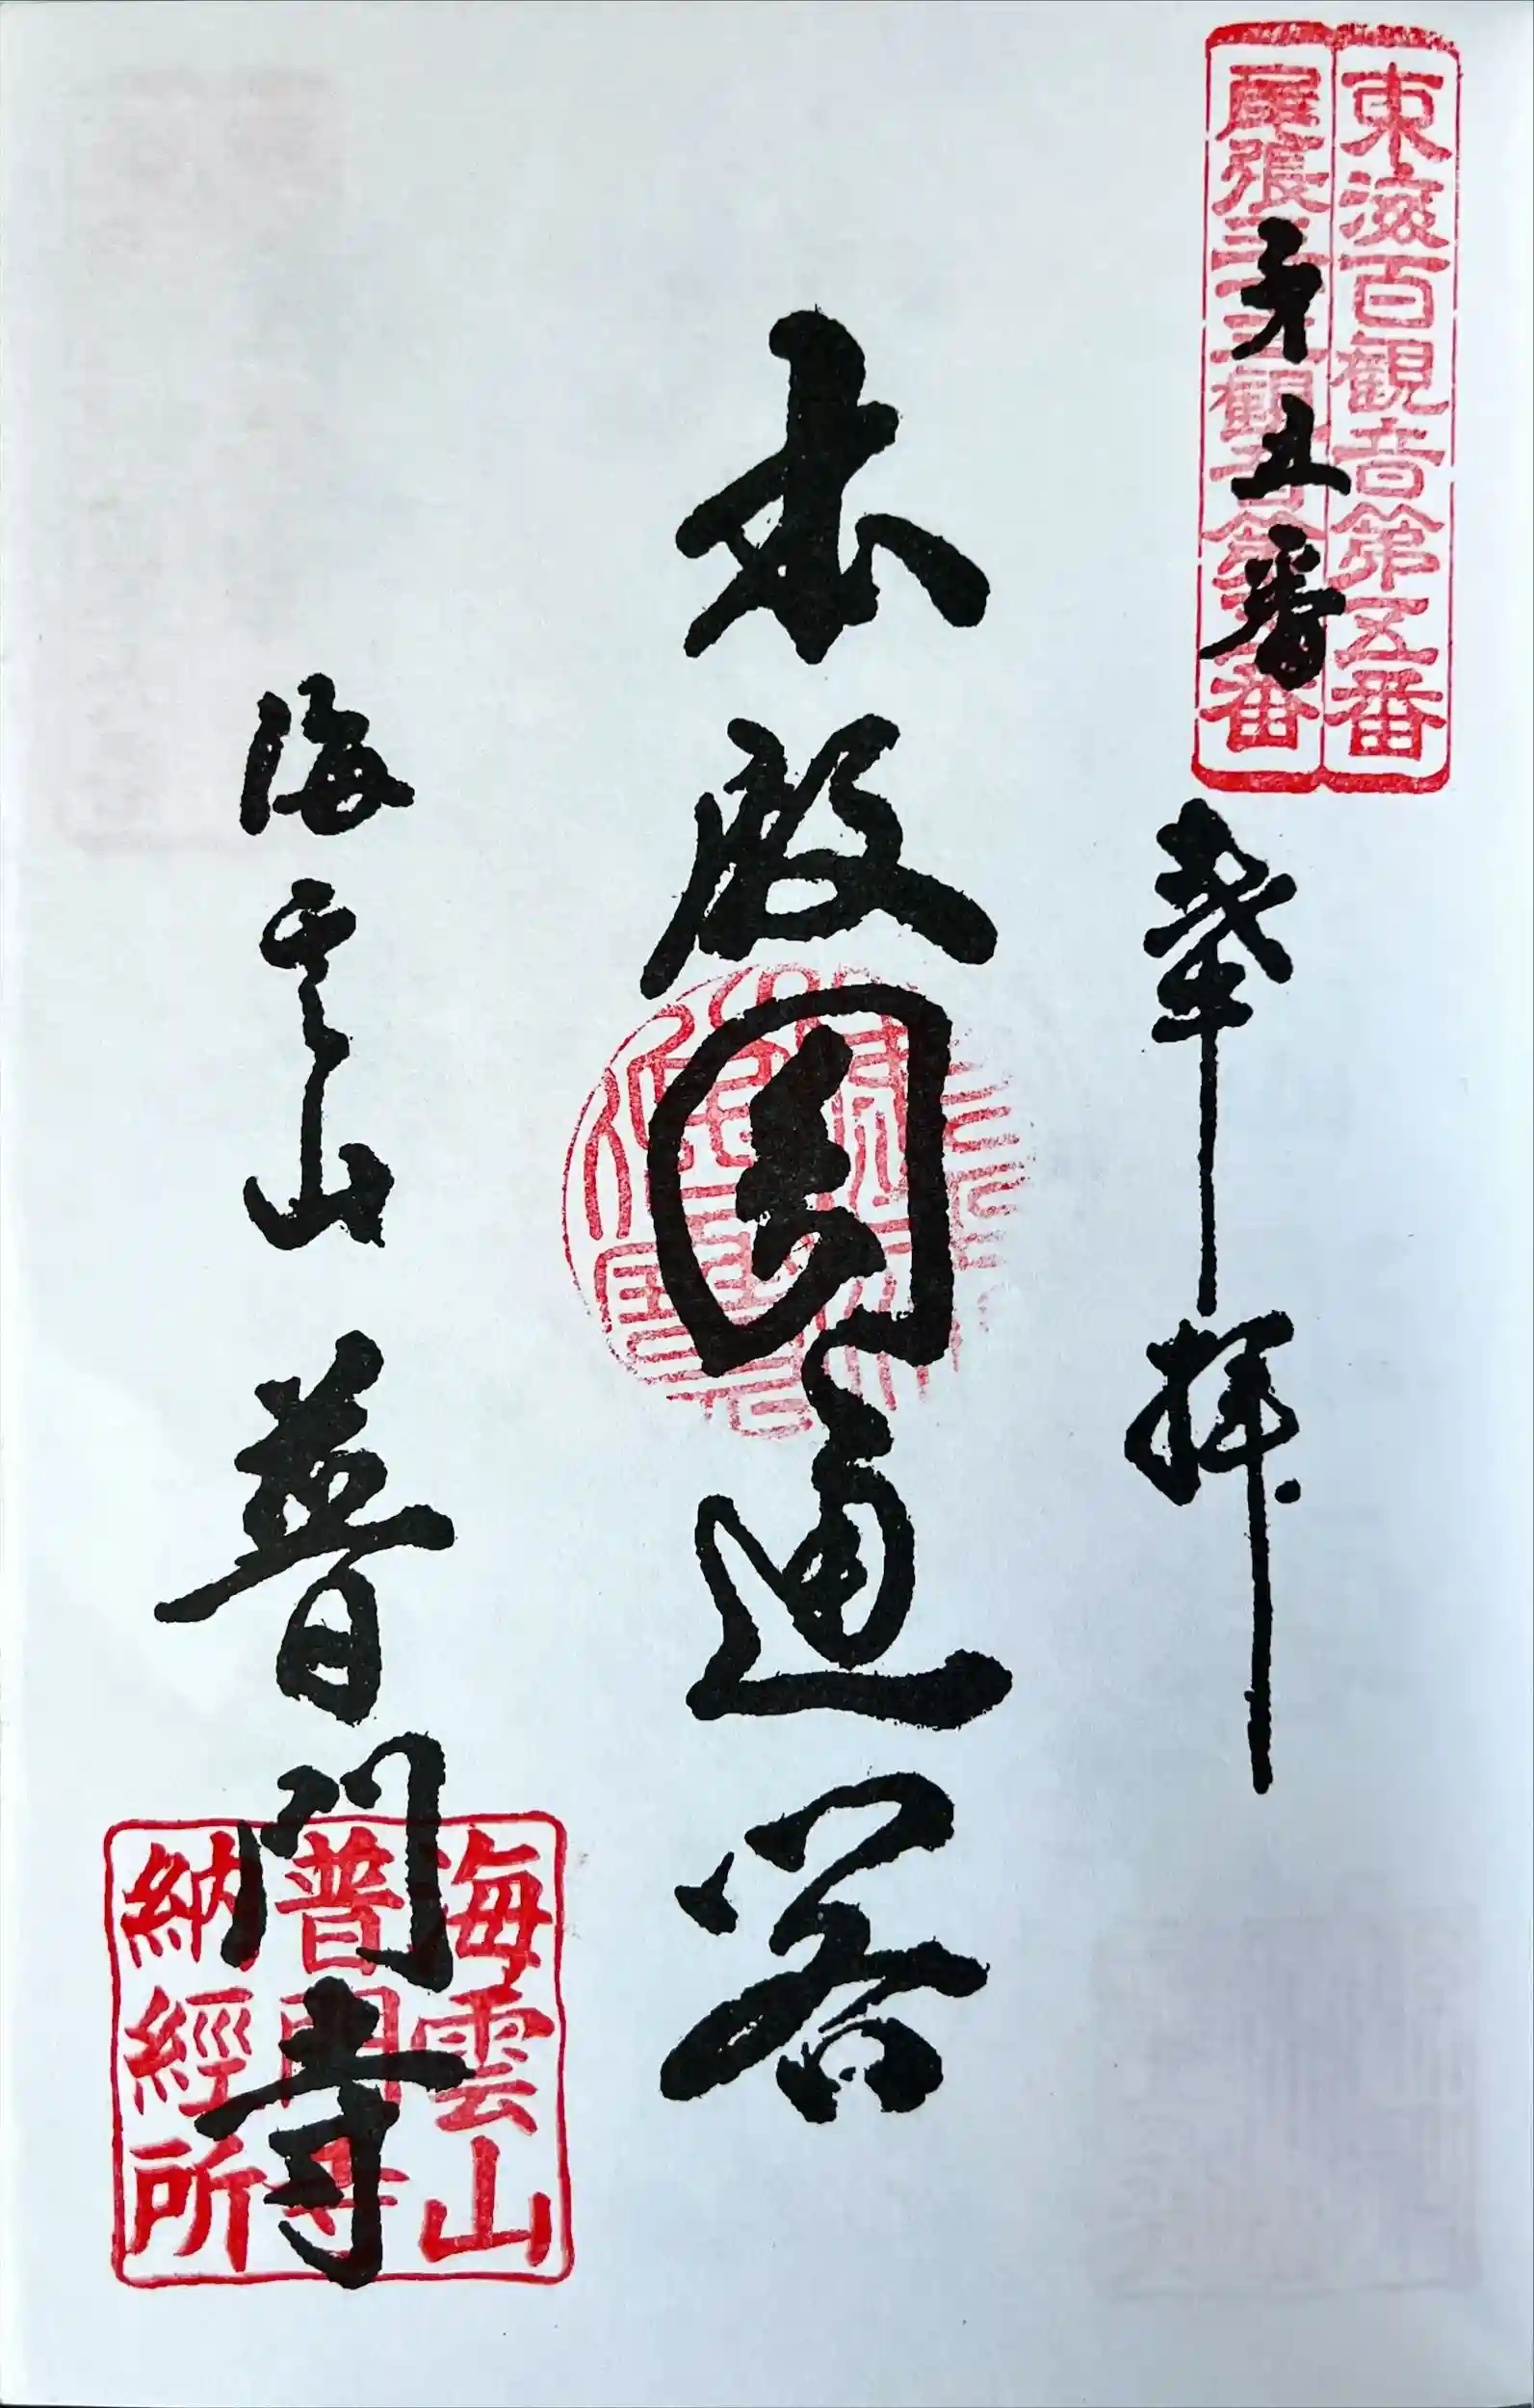 東海百観音第五番
尾張三十三観音第五番
第五番
奉拝
本殿圓通閣
海雲山普門寺
海雲山
普門寺
納經所